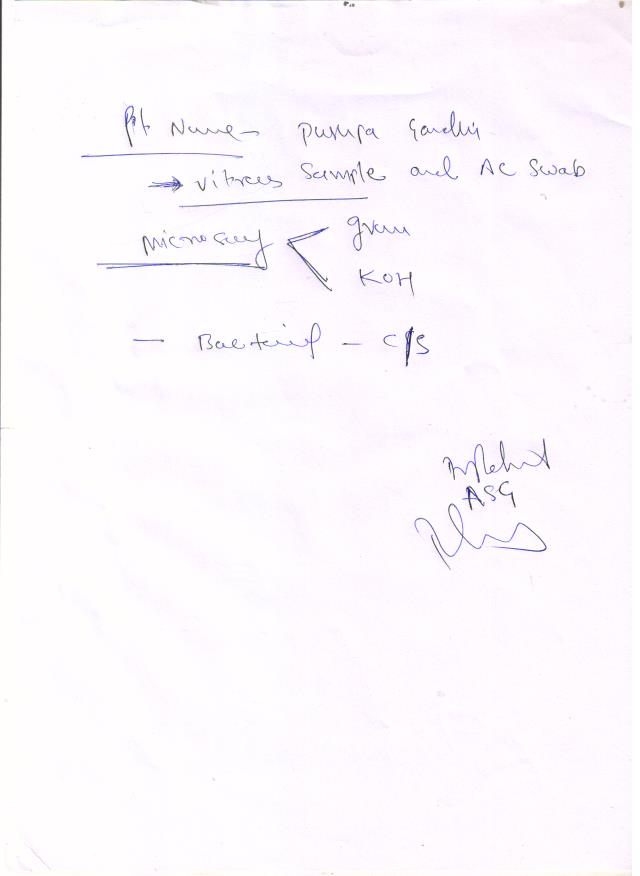 Pt Name - Pushpa Gandhi
→ Vitreous Sample and AC Swab
Microscopy < gram
KOH
— Bacterial — C/S
Dr Rohit
ASG